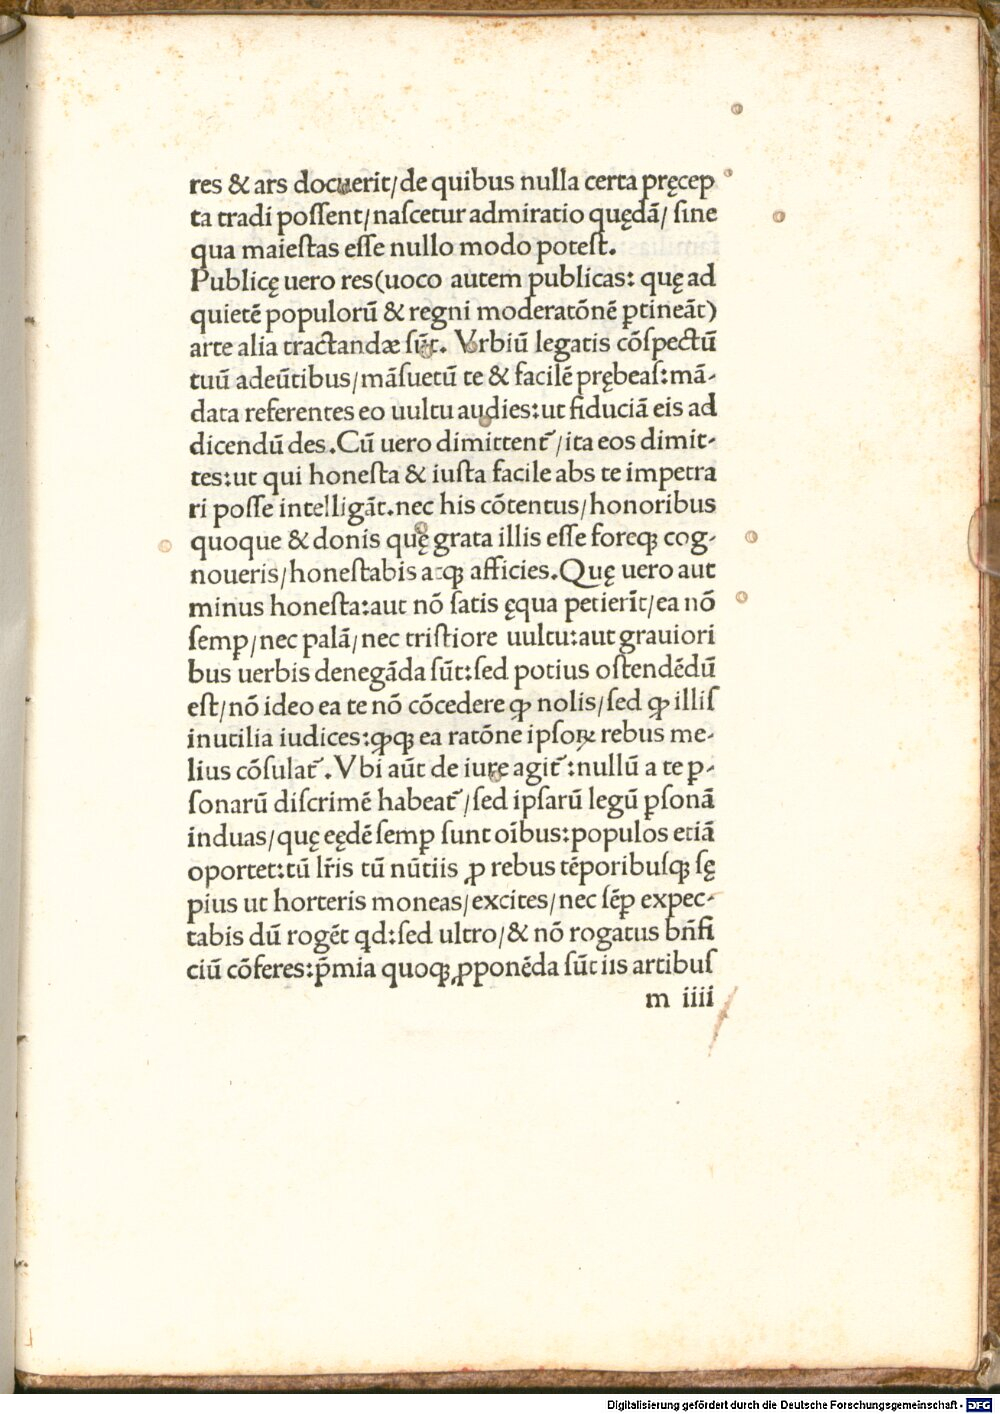 res & ars docuerit/de quibus nulla certa pręcep
ta tradi poſſent/naſcetur admiratio quędā/ ſine
qua maieſtas eſſe nullo modo poteſt.
Publicę uero res(uoco autem publicas: quę ad
quietē populorū & regni moderatōnē ꝑtineāt)
arte alia tractandæ ſūt. Vrbiū legatis cōſpectū
tuū adeūtibus/māſuetū te & facilē prębeaſ:mā-
data referentes eo uultu audies:ut fiduciā eis ad
dicendū des.Cū uero dimittent᷑/ita eos dimit-
tes:ut qui honeſta & iuſta facile abs te impetra
ri poſſe intelligāt.nec his cōtentus/honoribus
quoque & donis quę grata illis eſſe foreqꝫ cog-
noueris/honeſtabis atqꝫ afficies.Quę uero aut
minus honeſta:aut nō ſatis ęqua petierīt/ea nō
ſemꝑ/nec palā/nec triſtiore uultu:aut grauiori
bus uerbis denegāda ſūt:ſed potius oſtendēdū
eſt/nō ideo ea te nō cōcedere ꝙ nolis/ſed ꝙ illiſ
inutilia iudices:ꝙqꝫ ea ratōne ipſoꝝ rebus me-
lius cōſulat᷑.Vbi aūt de iure agit᷑:nullū a te ꝑ-
ſonarū diſcrimē habeat᷑/ſed ipſarū legū ꝑſonā
induas/quę eędē ſemꝑ ſunt oībus:populos etiā
oportet:tū lr̄is tū nūtiis ꝓ rebus tēporibuſqꝫ ſę
pius ut horteris moneas/excites/nec ſēꝑ expec-
tabis dū rogēt qd:ſed ultro/& nō rogatus bn̄fi
ciū cōferes:p̄mia quoqꝫ ꝓponēda ſūt iis artibuſ
m iiii
Digitalisierung gefördert durch die Deutsche Forschungsgemeinschaft - DFG